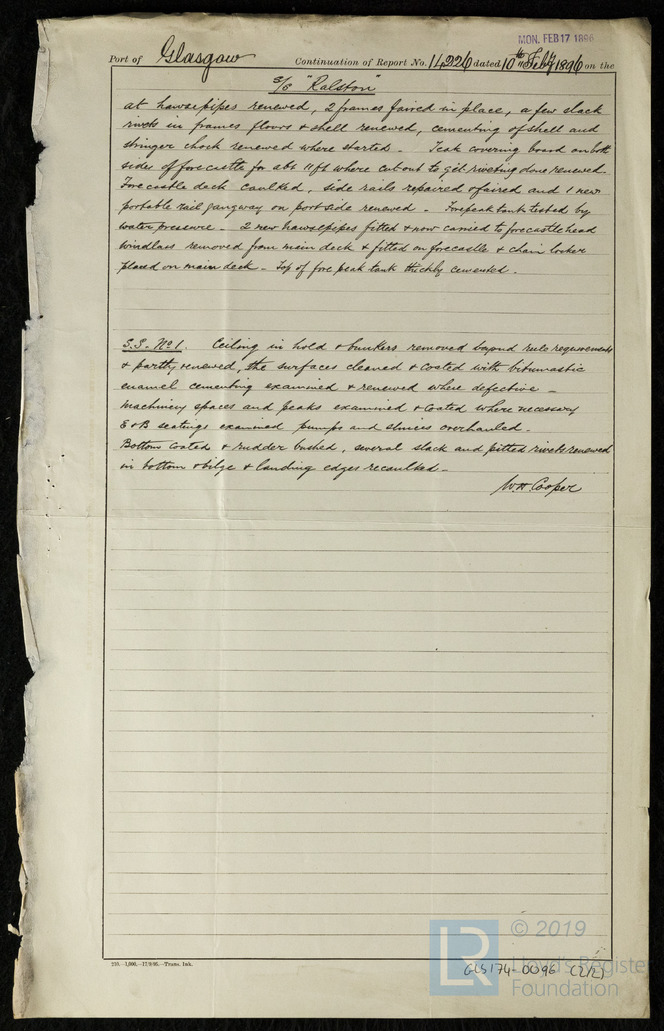 MON. FEB 17 1896
Port of Glasgow Continuation of Report No. 14226 dated 10th Feby 1896 on the
S/S "Ralston"
at hawsepipes renewed, 2 frames faired in place, a few slack
rivets in frames floors & shell renewed, cementing of shell and
stringer chock renewed where started - Teak covering board on both
sides of forecastle for abt 11 ft where cut out to get riveting done renewed.
Forecastle deck caulked, side rails repaired & faired and 1 new
portable rail gangway on port side renewed - Forepeak tank tested by
water pressure - 2 new hawsepipes fitted & now carried to forecastle head
windlass removed from main deck & fitted on forecastle & chain locker
placed on main deck - Top of fore peak tank thickly cemented.
S.S. No 1. Ceiling in hold & bunkers removed beyond rule requirements
& partly renewed, the surfaces cleaned & coated with bitumastic
enamel cementing examined & renewed where defective -
Machinery spaces and peaks examined & coated where necessary
E & B seatings examined pumps and sluices overhauled.
Bottom coated & rudder bushed, several slack and pitted rivets renewed
in bottom & bilge & landing edges recaulked -
W.H. Cooper
210.-1,000.-17/9/95.-Trans. Ink.
LR © 2019
Lloyd's Register
Foundation
GLS174-0096 (2/2)